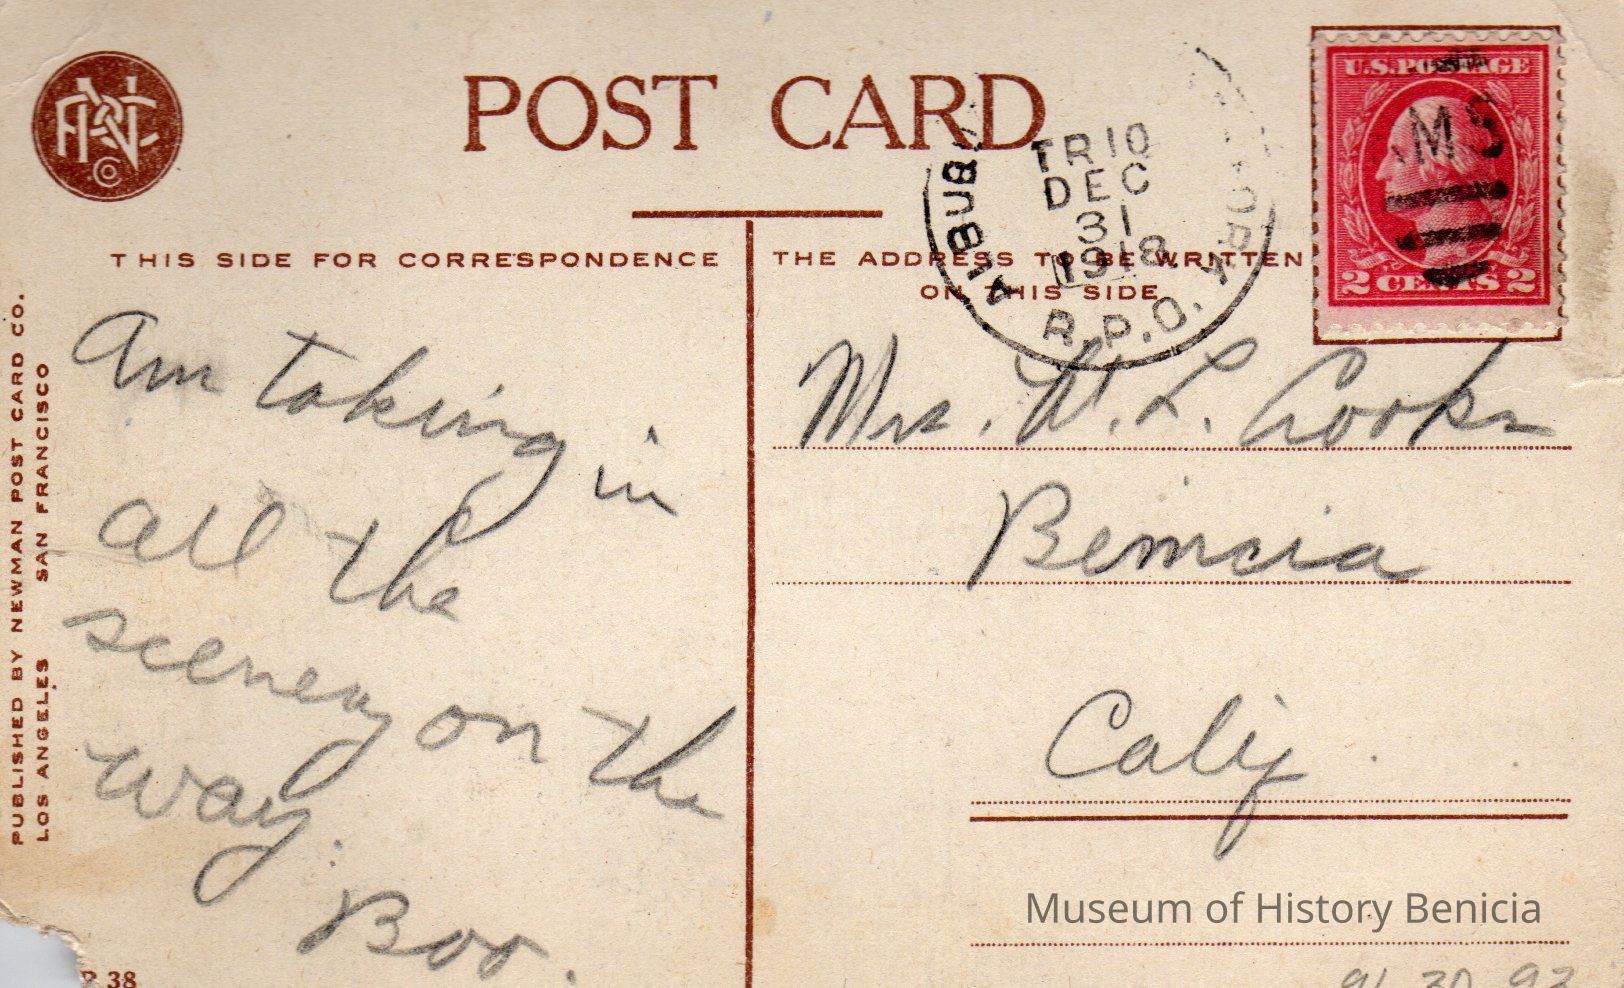 POST CARD
THIS SIDE FOR CORRESPONDENCE
THE ADDRESS TO BE WRITTEN
ON THIS SIDE
TR 10
DEC
31
1918
R.P.O.
U.S. POSTAGE
2 CENTS 2
Am taking in
all the
scenery on the
way.
Boo.
Mrs. W. L. Cooke
Benicia
Calif.
PUBLISHED BY NEWMAN POST CARD CO.
LOS ANGELES SAN FRANCISCO
Museum of History Benicia
38